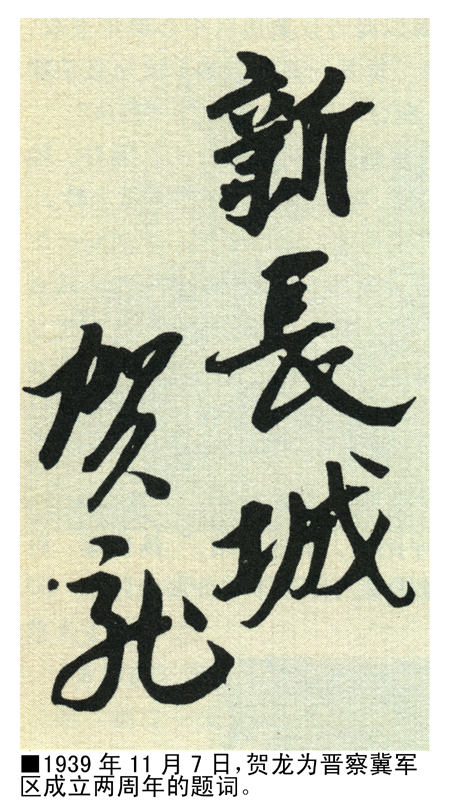 新長城
贺龙
■1939年11月7日,贺龙为晋察冀军
区成立两周年的题词。